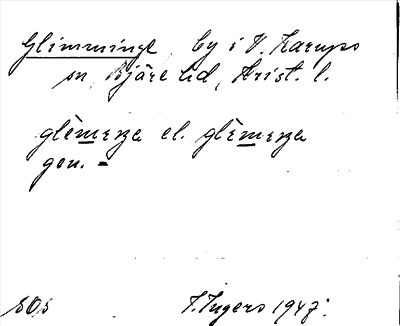 Glimminge, by i V. Karups
sn, Bjäre hd, Krist. l.
glèmeŋa el. glèmeŋa
gen. =
F. Ingers 1947.